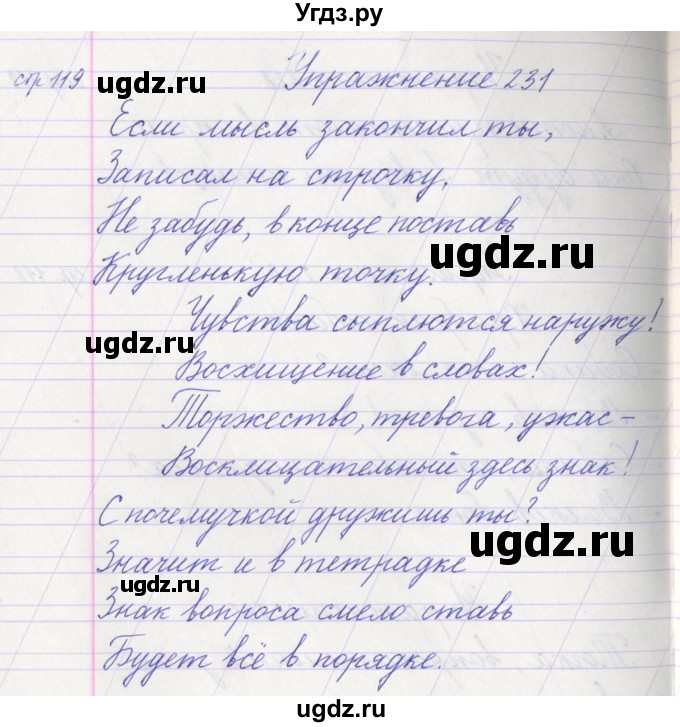 Угдз.ру
стр 119 ugdz.ru Упражнение 231
Если мысль закончил ты,
Записал на строчку,
Не забудь, в конце поставь
ugdz.ru
Кругленькую точку.
Чувства сыплются наружу!
ugdz.ru
Восхищение в словах!
Торжество, тревога, ужас –
Восклицательный здесь знак!
С почемучкой дружишь ты?
ugdz.ru
Значит и в тетрадке
ugdz.ru
Знак вопроса смело ставь
Будет всё в порядке.
ugdz.ru